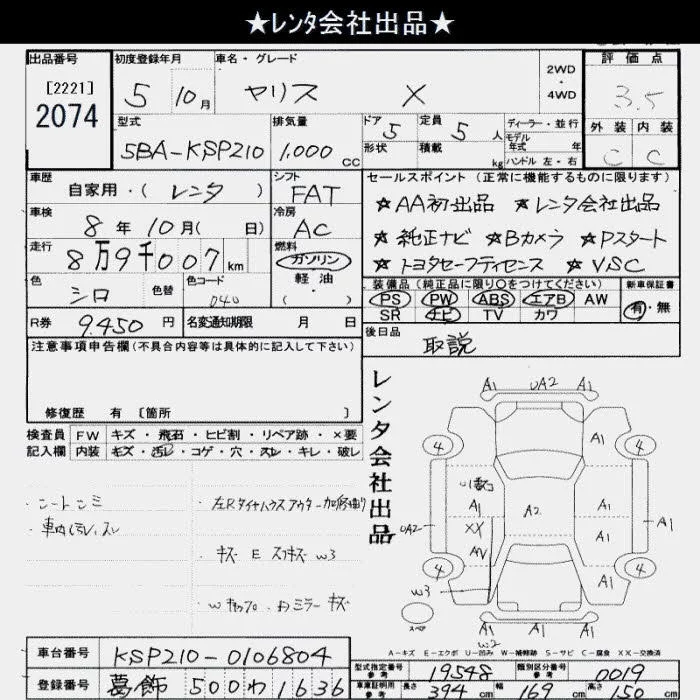 ★レンタ会社出品★
出品番号 初度登録年月 車名・グレード 2WD・4WD 評価点
[2221]
2074
5 10月 ヤリス X 3.5
外装 内装
C C
型式 排気量 ドア 5 定員 5人 ディーラー・並行
5BA-KSP210 1,000cc 形状 積載 kg モデル年式 年
ハンドル 左・右
車歴 シフト セールスポイント(正常に機能するものに限ります)
自家用・(レンタ) FAT ★AA初出品 ★レンタ会社出品
車検 冷房
8年10月(日) AC ★純正ナビ ★Bカメラ ★Pスタート
走行 燃料
8万9千007km ガソリン ★トヨタセーフティセンス ★VSC
軽油
色 色替 色コード ・( ) 装備品(純正品に限り○をつけてください) 新車保証書
シロ 040 PS PW ABS エアB AW 有・無
SR ナビ TV カワ
R券 9,450円 名変通知期限 月 日 後日品
取説
注意事項申告欄(不具合内容等は具体的に記入して下さい)
修復歴 有 [箇所 ]
検査員 FW キズ・飛石・ヒビ割・リペア跡・×要
記入欄 内装 キズ・汚レ・コゲ・穴・スレ・キレ・破レ
・シートシミ
・車内汚レ、スレ
・左Rタイヤハウスアウター加修有り
・キズ E スリキズ W3
レンタ会社出品
A1 UA2 A1
4 4
A1
A1 A2 A1
XX
UA2 AV A1 A1
4 4
W3
スペア A1 A1 A1
W2
A-キズ E-エクボ U-凹み W-補修跡 S-サビ C-腐食 XX-交換済
車台番号 KSP210-0106804
登録番号 葛飾 500わ1636
型式指定番号 参考 19548 類別区分番号 参考 0019
車庫証明用 参考 長さ 394cm 幅 169cm 高さ 150cm